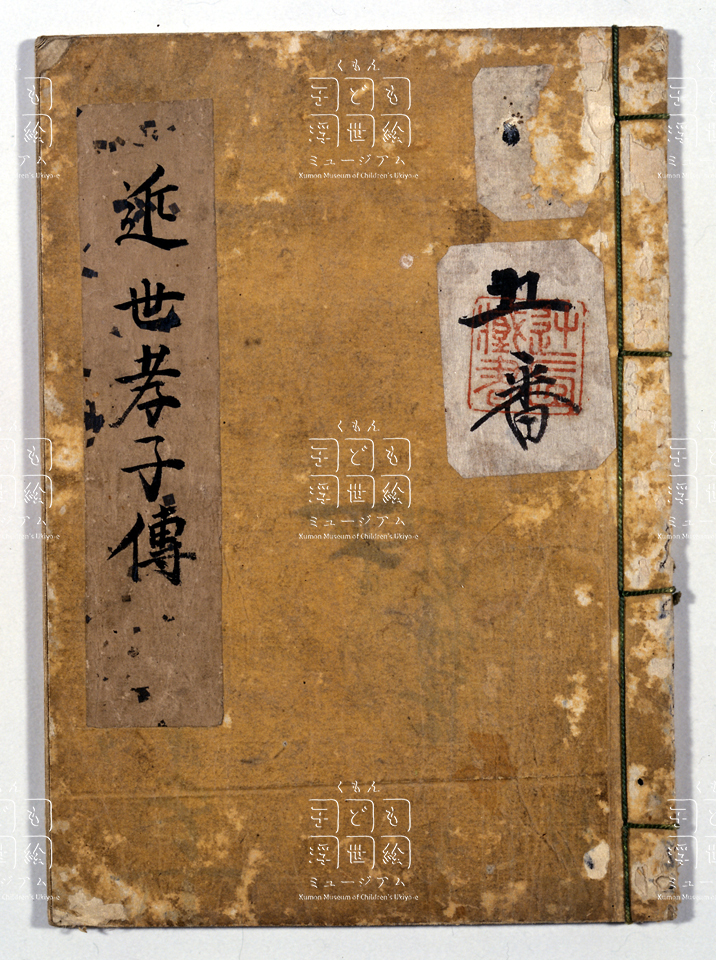 五番
近世孝子傳
くもん
子ども
浮世絵
ミュージアム
Kumon Museum of Children's Ukiyo-e
くもん
子ども
浮世絵
ミュージアム
Kumon Museum of Children's Ukiyo-e
くもん
子ども
浮世絵
ミュージアム
Kumon Museum of Children's Ukiyo-e